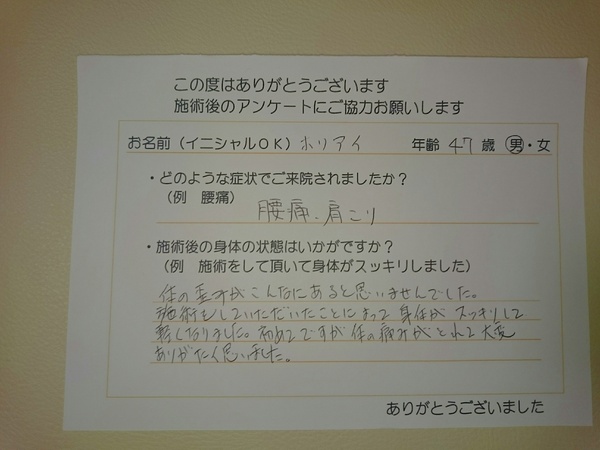 この度はありがとうございます
施術後のアンケートにご協力お願いします
お名前（イニシャルOK）ホリアイ 年齢 47 歳 男・女
・どのような症状でご来院されましたか？
（例 腰痛）
腰痛、肩こり
・施術後の身体の状態はいかがですか？
（例 施術をして頂いて身体がスッキリしました）
体の歪みがこんなにあると思いませんでした。
施術をしていただいたことによって身体がスッキリして
楽になりました。初めてですが体の痛みがとれて大変
ありがたく思いました。
ありがとうございました